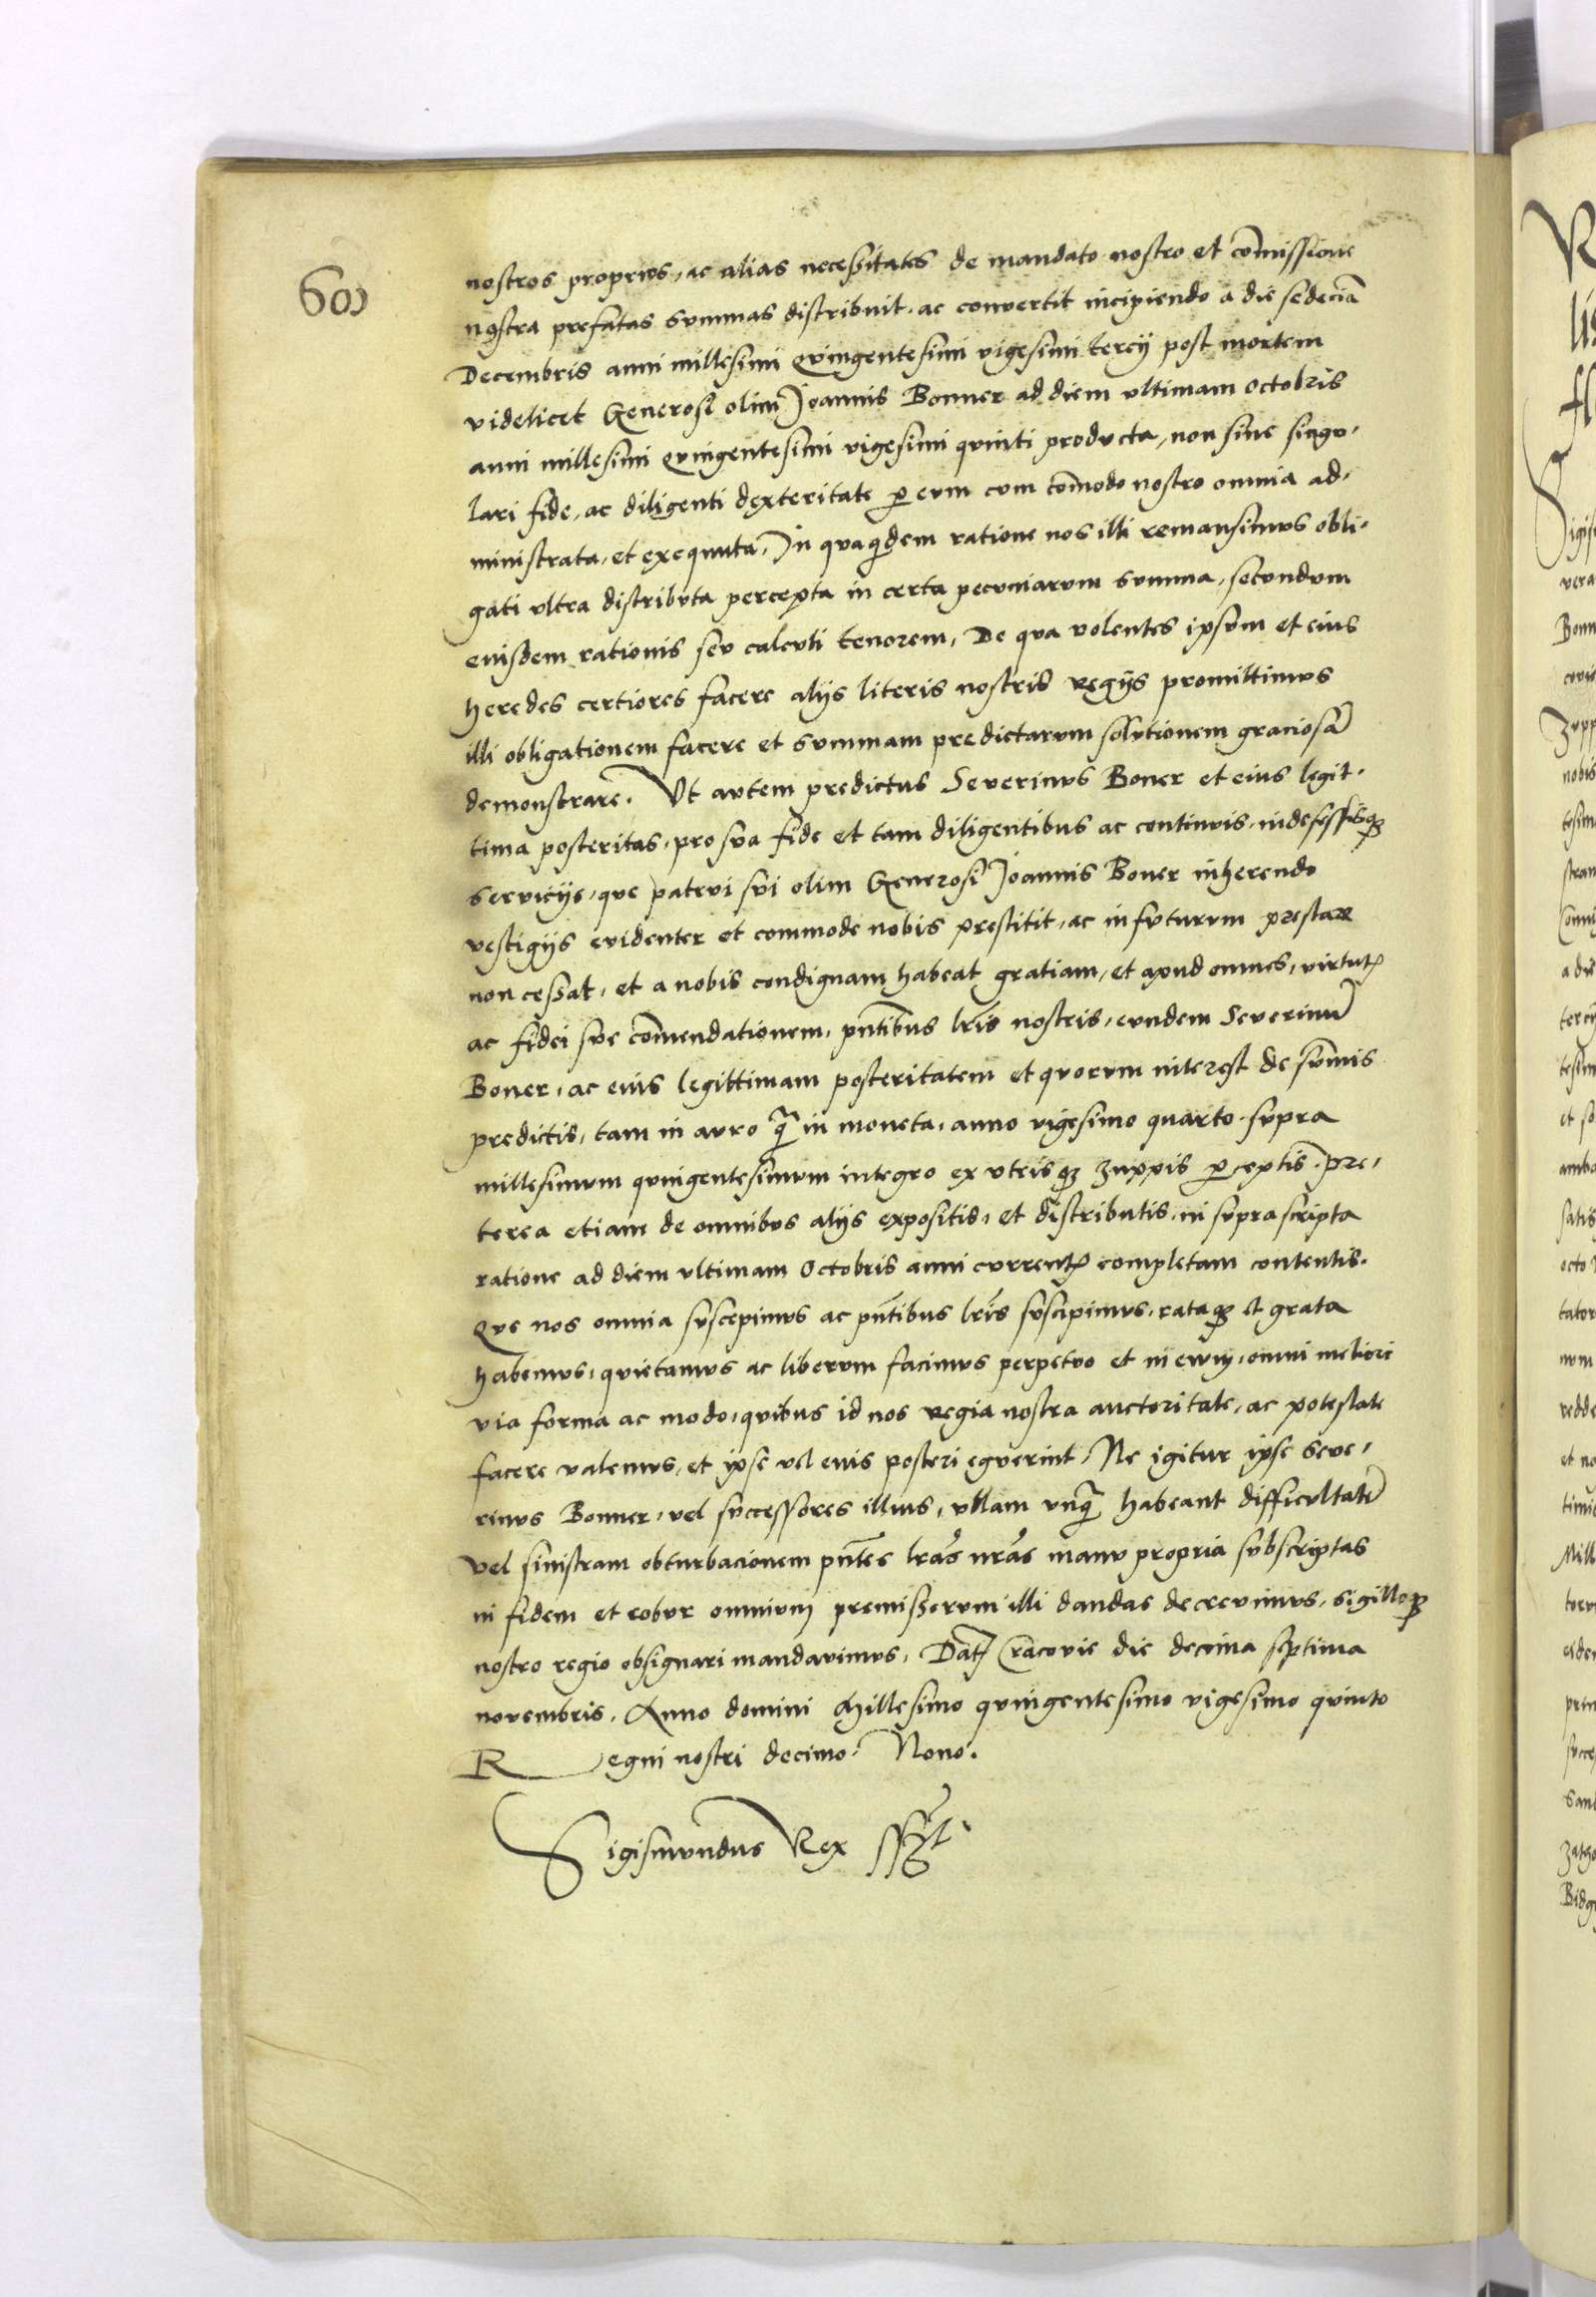 600
nostros proprios, ac alias necessitates de mandato nostro et cõmissione
nostra prefatas summas distribuit, ac convertit incipiendo a die sedeciã
Decembris anni millesimi quingentesimi vigesimi tercij post mortem
videlicet Generosi olim Joannis Bonner ad diem ultimam octobris
anni millesimi quingentesimi vigesimi quinti producta, non sine singu-
lari fide, ac diligenti dexteritate p eum cum cõmodo nostro omnia ad-
ministrata, et exequuta, In qua qdem ratione nos illi remansimus obli-
gati ultra distributa percepta in certa pecuniarum summa, secundum
eiusdem rationis seu calculi tenorem, De qua volentes ipsum et eius
heredes certiores facere alijs literis nostris regijs promittimus
illi obligationem facere et summam predictarum solutionem graciosã
demonstrare. Ut autem predictus Severinus Boner et eius legit-
tima posteritas, pro sua fide et tam diligentibus ac continuis, indefessisqz
servicijs, que patrui sui olim Generosi Joannis Boner inherendo
vestigijs evidenter et commode nobis prestitit, ac in futurum prestare
non cessat, et a nobis condignam habeat gratiam, et apud omnes, virtutz
ac fidei sue cõmendationem, pntibus lris nostris, eundem Severinũ
Boner, ac eius legittimam posteritatem et quorum interest de sumis
predictis, tam in auro q̃ in moneta, anno vigesimo quarto supra
millesimum quingentesimum integro ex utrisqz zuppis pceptis. pre-
terea etiam de omnibus alijs expositis, et distributis, in suprascripta
ratione ad diem ultimam Octobris anni currentz completam contentis.
Que nos omnia suscepimus ac pntibus lris suscipimus, rataqz et grata
habemus, quietamus ac liberum facimus perpetuo et in evum, omni meliori
via forma ac modo, quibus id nos regia nostra auctoritate, ac potestate
facere valemus, et ipse vel eius posteri eguerint, Ne igitur ipse Seve-
rinus Bonner, vel successores illius, ullam unq̃ habeant difficultatẽ
vel sinistram obturbacionem pntes lras nras manu propria subscriptas
in fidem et robur omnium premissorum illi dandas decrevimus, sigilloqz
nostro regio obsignari mandavimus, Datz Cracovie die decima septima
novembris, Anno domini Millesimo quingentesimo vigesimo quinto
Regni nostri decimo Nono.
Sigismundus Rex sszt